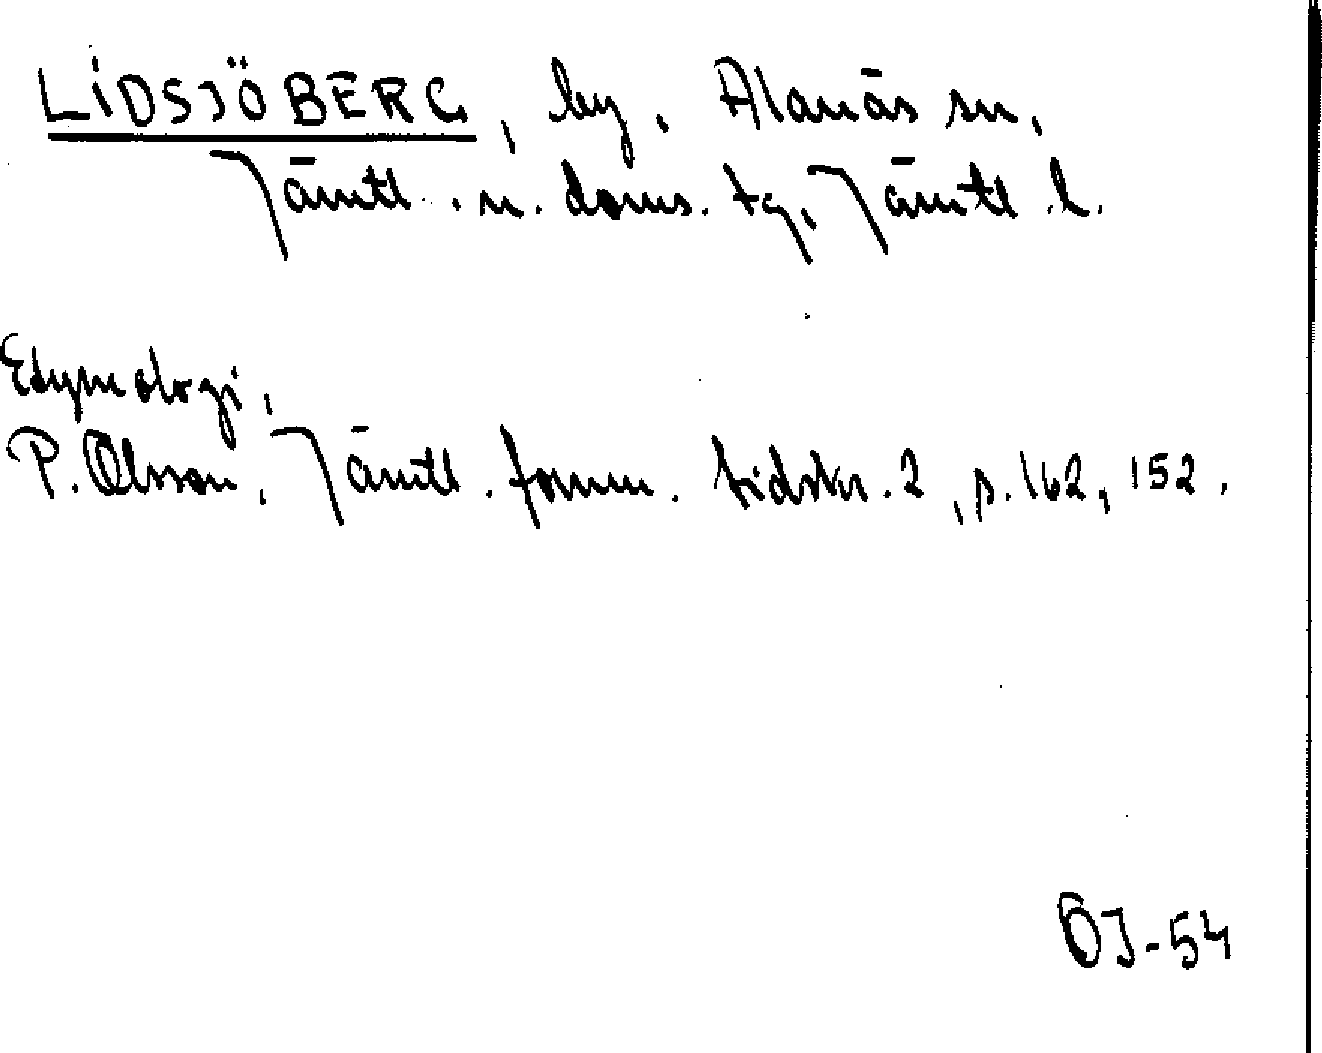 LIDSJÖBERG, by, Alanäs sn,
Jämtl. n. doms. tg, Jämtl. l.
Etymologi,
P. Olsson, Jämtl. fornm. tidskr. 2, s. 162, 152.
ÖJ-54